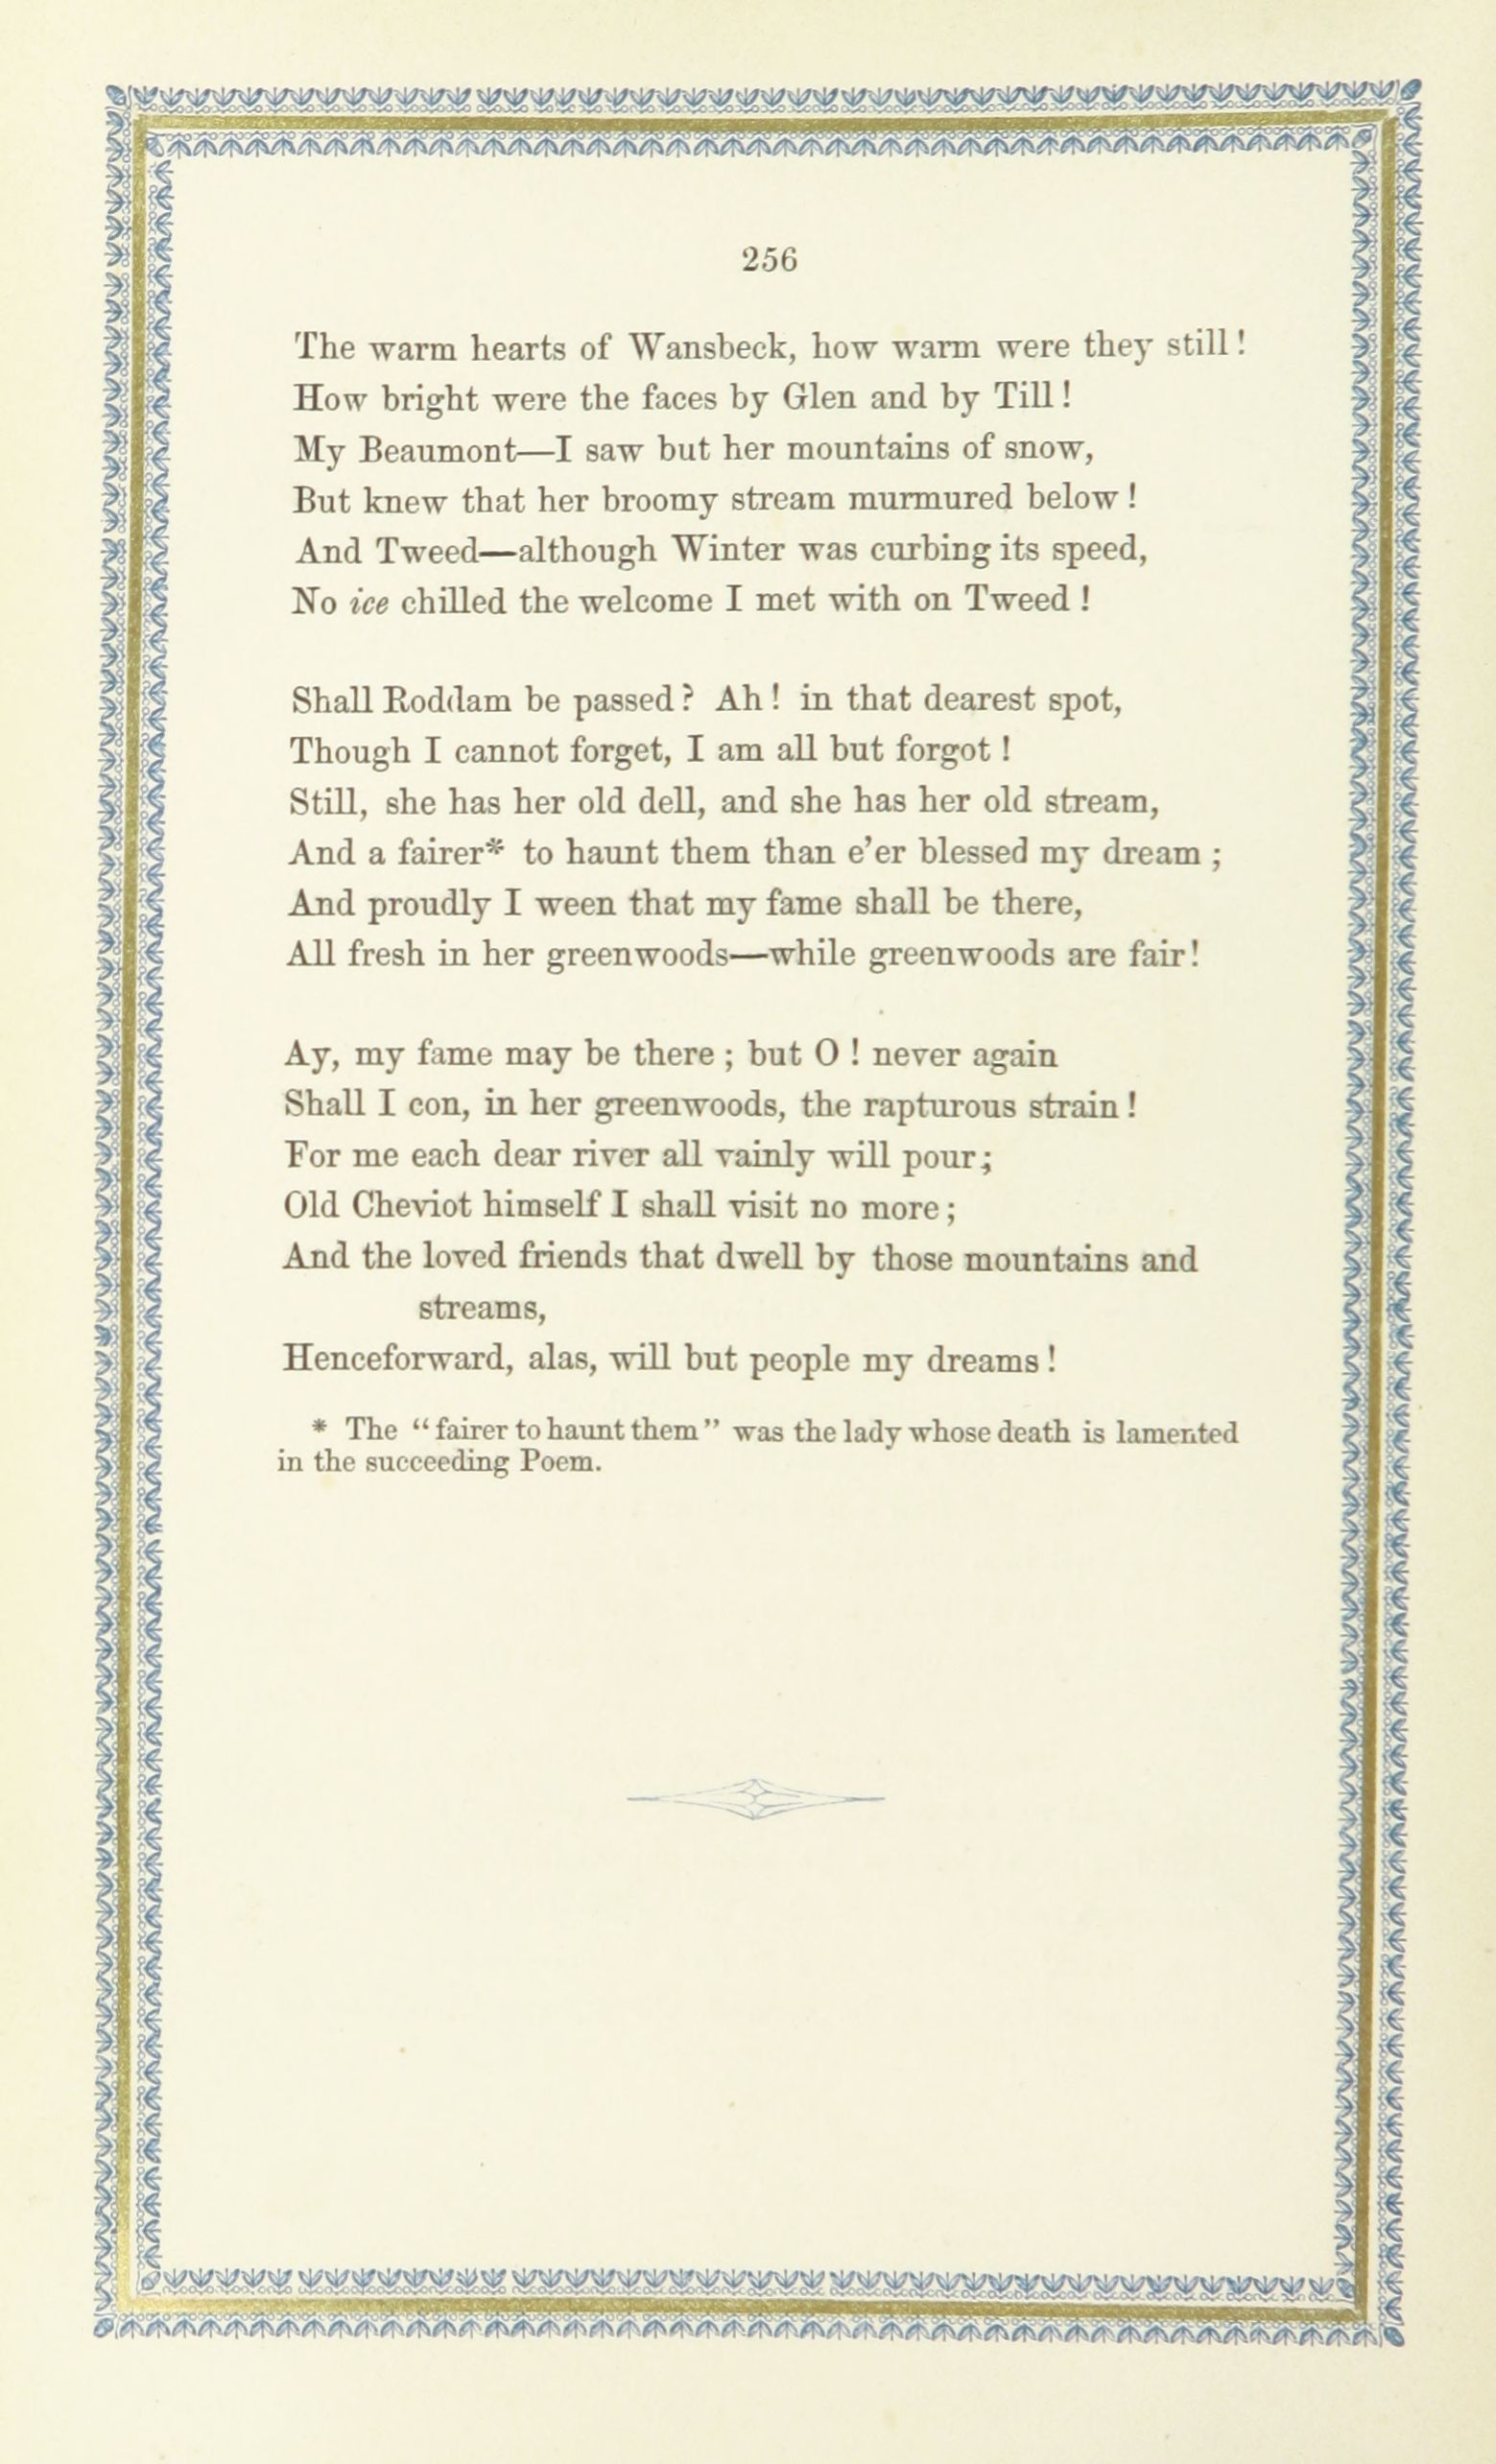 256
The warm hearts of Wansbeck, how warm were they still!
How bright were the faces by Glen and by Till!
My Beaumont—I saw but her mountains of snow,
But knew that her broomy stream murmured below!
And Tweed—although Winter was curbing its speed,
No ice chilled the welcome I met with on Tweed!
Shall Roddam be passed? Ah! in that dearest spot,
Though I cannot forget, I am all but forgot!
Still, she has her old dell, and she has her old stream,
And a fairer* to haunt them than e'er blessed my dream;
And proudly I ween that my fame shall be there,
All fresh in her greenwoods—while greenwoods are fair!
Ay, my fame may be there; but O! never again
Shall I con, in her greenwoods, the rapturous strain!
For me each dear river all vainly will pour;
Old Cheviot himself I shall visit no more;
And the loved friends that dwell by those mountains and
streams,
Henceforward, alas, will but people my dreams!
* The "fairer to haunt them" was the lady whose death is lamented
in the succeeding Poem.